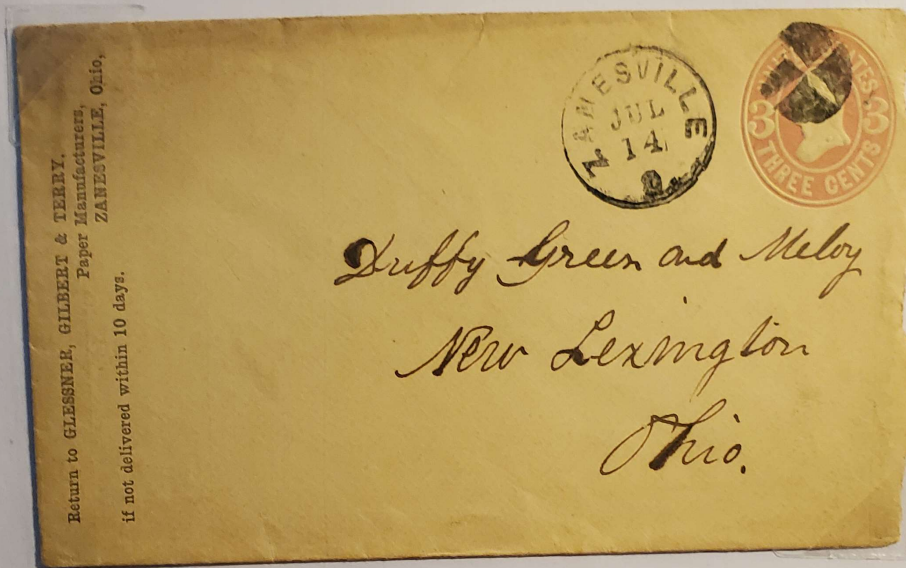 Return to GLESSNER, GILBERT & TERRY,
Paper Manufacturers,
ZANESVILLE, Ohio,
if not delivered within 10 days.
ZANESVILLE
JUL
14
O.
UNITED STATES
3 3
THREE CENTS
Duffy Green and Meloy
New Lexington
Ohio.